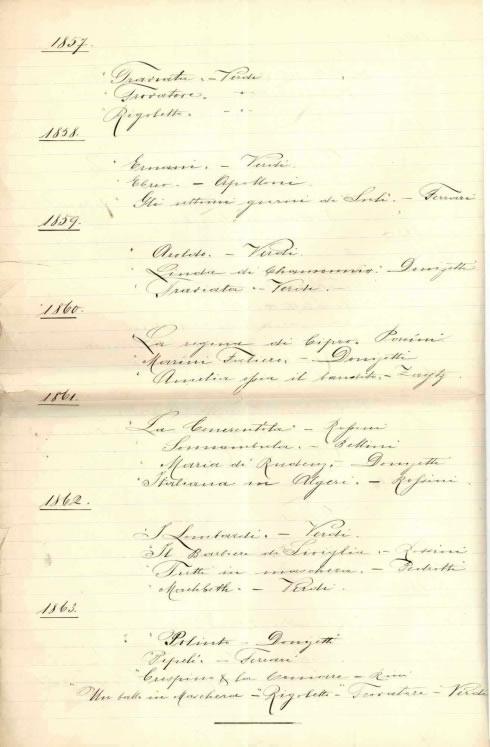 1857.
Traviata. - Verdi
Trovatore. " "
Rigoletto. - " "
1858.
Ernani. - Verdi.
Ebreo. - Apolloni.
Gli ultimi giorni di Suli. - Ferrari
1859.
Aroldo. - Verdi.
Linda di Chamounix. Donizetti
Traviata. - Verdi. -
1860.
La regina di Cipro. Pacini
Marini Faliero. - Donizetti
Amelia ossia il bandito. - Zaytz.
1861.
La Cenerentola - Rossini
Sonnambula. - Bellini
Maria di Rudenz. - Donizetti
Italiana in Algeri. - Rossini.
1862.
I Lombardi. - Verdi.
Il Barbiere di Siviglia - Rossini
Tutti in maschera. - Pedrotti
Macbeth. - Verdi.
1863.
"Poliuto - Donizetti
"Pipelè. - Ferrari
"Crispino & la Comare - Ricci
"Un ballo in Maschera - "Rigoletto" - Trovatore - Verdi